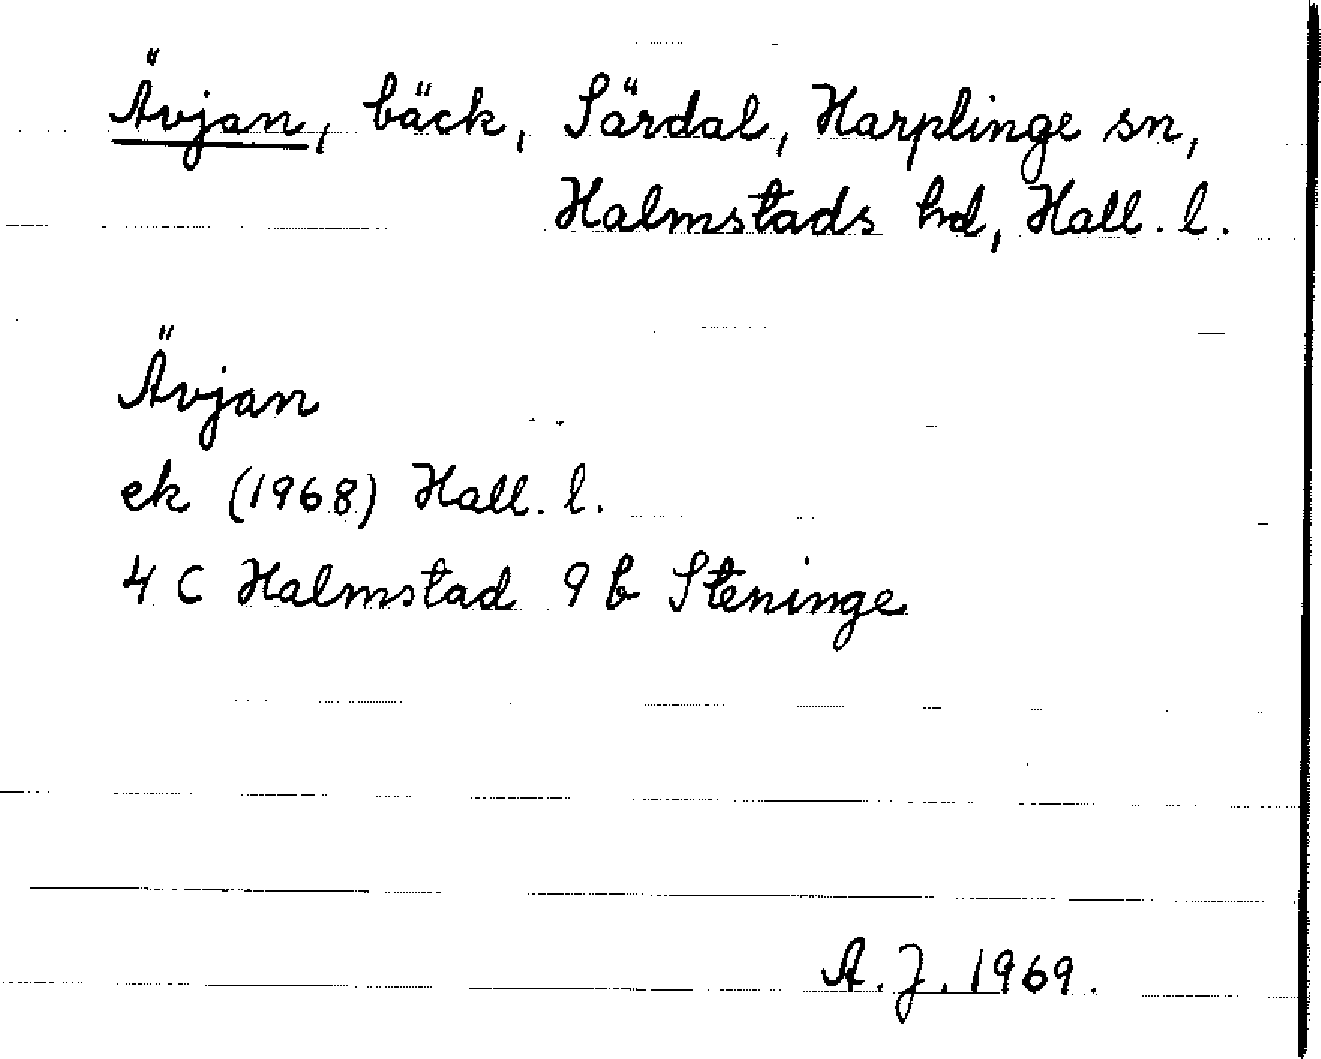 Ävjan, bäck, Särdal, Harplinge sn,
Halmstads hd, Hall. l.
Ävjan
ek (1968) Hall. l.
4 C Halmstad 9 b Steninge
A. J. 1969.